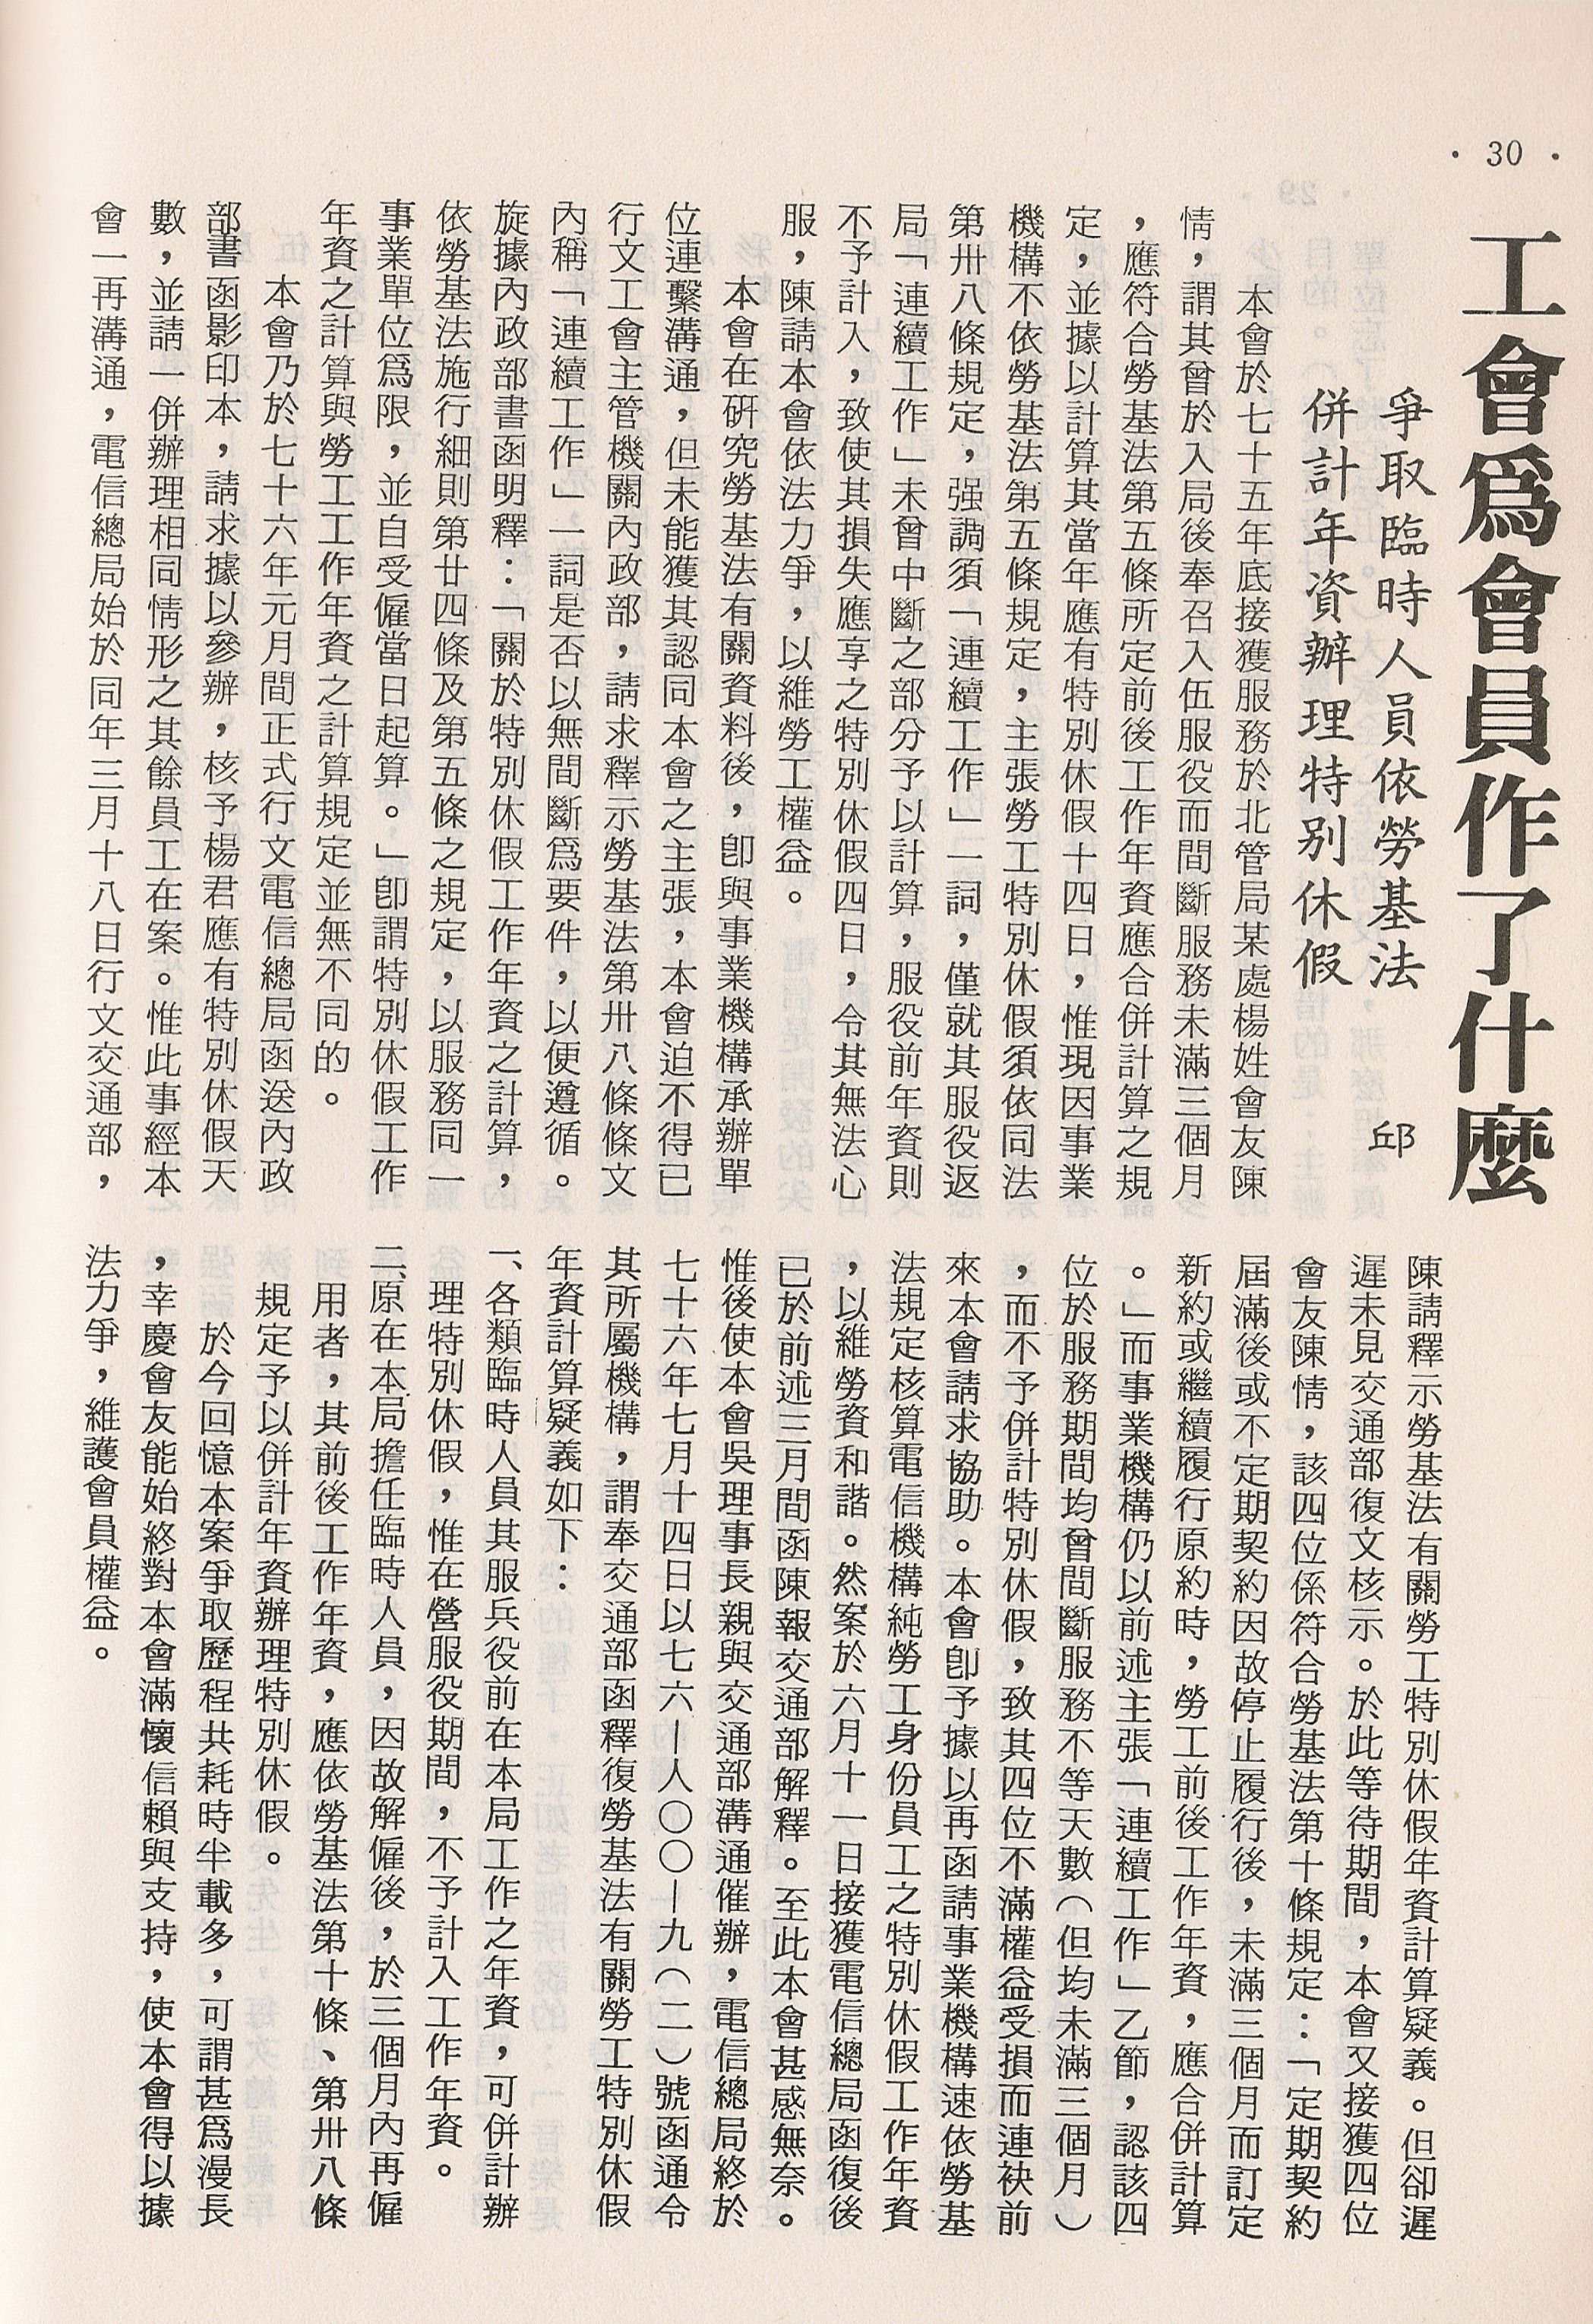 · 30 ·
工會爲會員作了什麼
爭取臨時人員依勞基法
併計年資辦理特別休假
邱
本會於七十五年底接獲服務於北管局某處楊姓會友陳
情，謂其曾於入局後奉召入伍服役而間斷服務未滿三個月
，應符合勞基法第五條所定前後工作年資應合併計算之規
定，並據以計算其當年應有特別休假十四日，惟現因事業
機構不依勞基法第五條規定，主張勞工特別休假須依同法
第卅八條規定，强調須「連續工作」一詞，僅就其服役返
局「連續工作」未曾中斷之部分予以計算，服役前年資則
不予計入，致使其損失應享之特別休假四日，令其無法心
服，陳請本會依法力爭，以維勞工權益。
本會在硏究勞基法有關資料後，卽與事業機構承辦單
位連繫溝通，但未能獲其認同本會之主張，本會迫不得已
行文工會主管機關內政部，請求釋示勞基法第卅八條條文
內稱「連續工作」一詞是否以無間斷爲要件，以便遵循。
旋據內政部書函明釋：「關於特別休假工作年資之計算，
依勞基法施行細則第廿四條及第五條之規定，以服務同一
事業單位爲限，並自受僱當日起算。」卽謂特別休假工作
年資之計算與勞工工作年資之計算規定並無不同的。
本會乃於七十六年元月間正式行文電信總局函送內政
部書函影印本，請求據以參辦，核予楊君應有特別休假天
數，並請一併辦理相同情形之其餘員工在案。惟此事經本
會一再溝通，電信總局始於同年三月十八日行文交通部，
陳請釋示勞基法有關勞工特別休假年資計算疑義。但卻遲
遲未見交通部復文核示。於此等待期間，本會又接獲四位
會友陳情，該四位係符合勞基法第十條規定：「定期契約
屆滿後或不定期契約因故停止履行後，未滿三個月而訂定
新約或繼續履行原約時，勞工前後工作年資，應合併計算
。」而事業機構仍以前述主張「連續工作」乙節，認該四
位於服務期間均曾間斷服務不等天數（但均未滿三個月）
，而不予併計特別休假，致其四位不滿權益受損而連袂前
來本會請求協助。本會卽予據以再函請事業機構速依勞基
法規定核算電信機構純勞工身份員工之特別休假工作年資
，以維勞資和諧。然案於六月十一日接獲電信總局函復後
已於前述三月間函陳報交通部解釋。至此本會甚感無奈。
惟後使本會吳理事長親與交通部溝通催辦，電信總局終於
七十六年七月十四日以七六—人〇〇—九（二）號函通令
其所屬機構，謂奉交通部函釋復勞基法有關勞工特別休假
年資計算疑義如下：
一、各類臨時人員其服兵役前在本局工作之年資，可併計辦
理特別休假，惟在營服役期間，不予計入工作年資。
二、原在本局擔任臨時人員，因故解僱後，於三個月內再僱
用者，其前後工作年資，應依勞基法第十條、第卅八條
規定予以併計年資辦理特別休假。
於今回憶本案爭取歷程共耗時半載多，可謂甚爲漫長
，幸慶會友能始終對本會滿懷信賴與支持，使本會得以據
法力爭，維護會員權益。